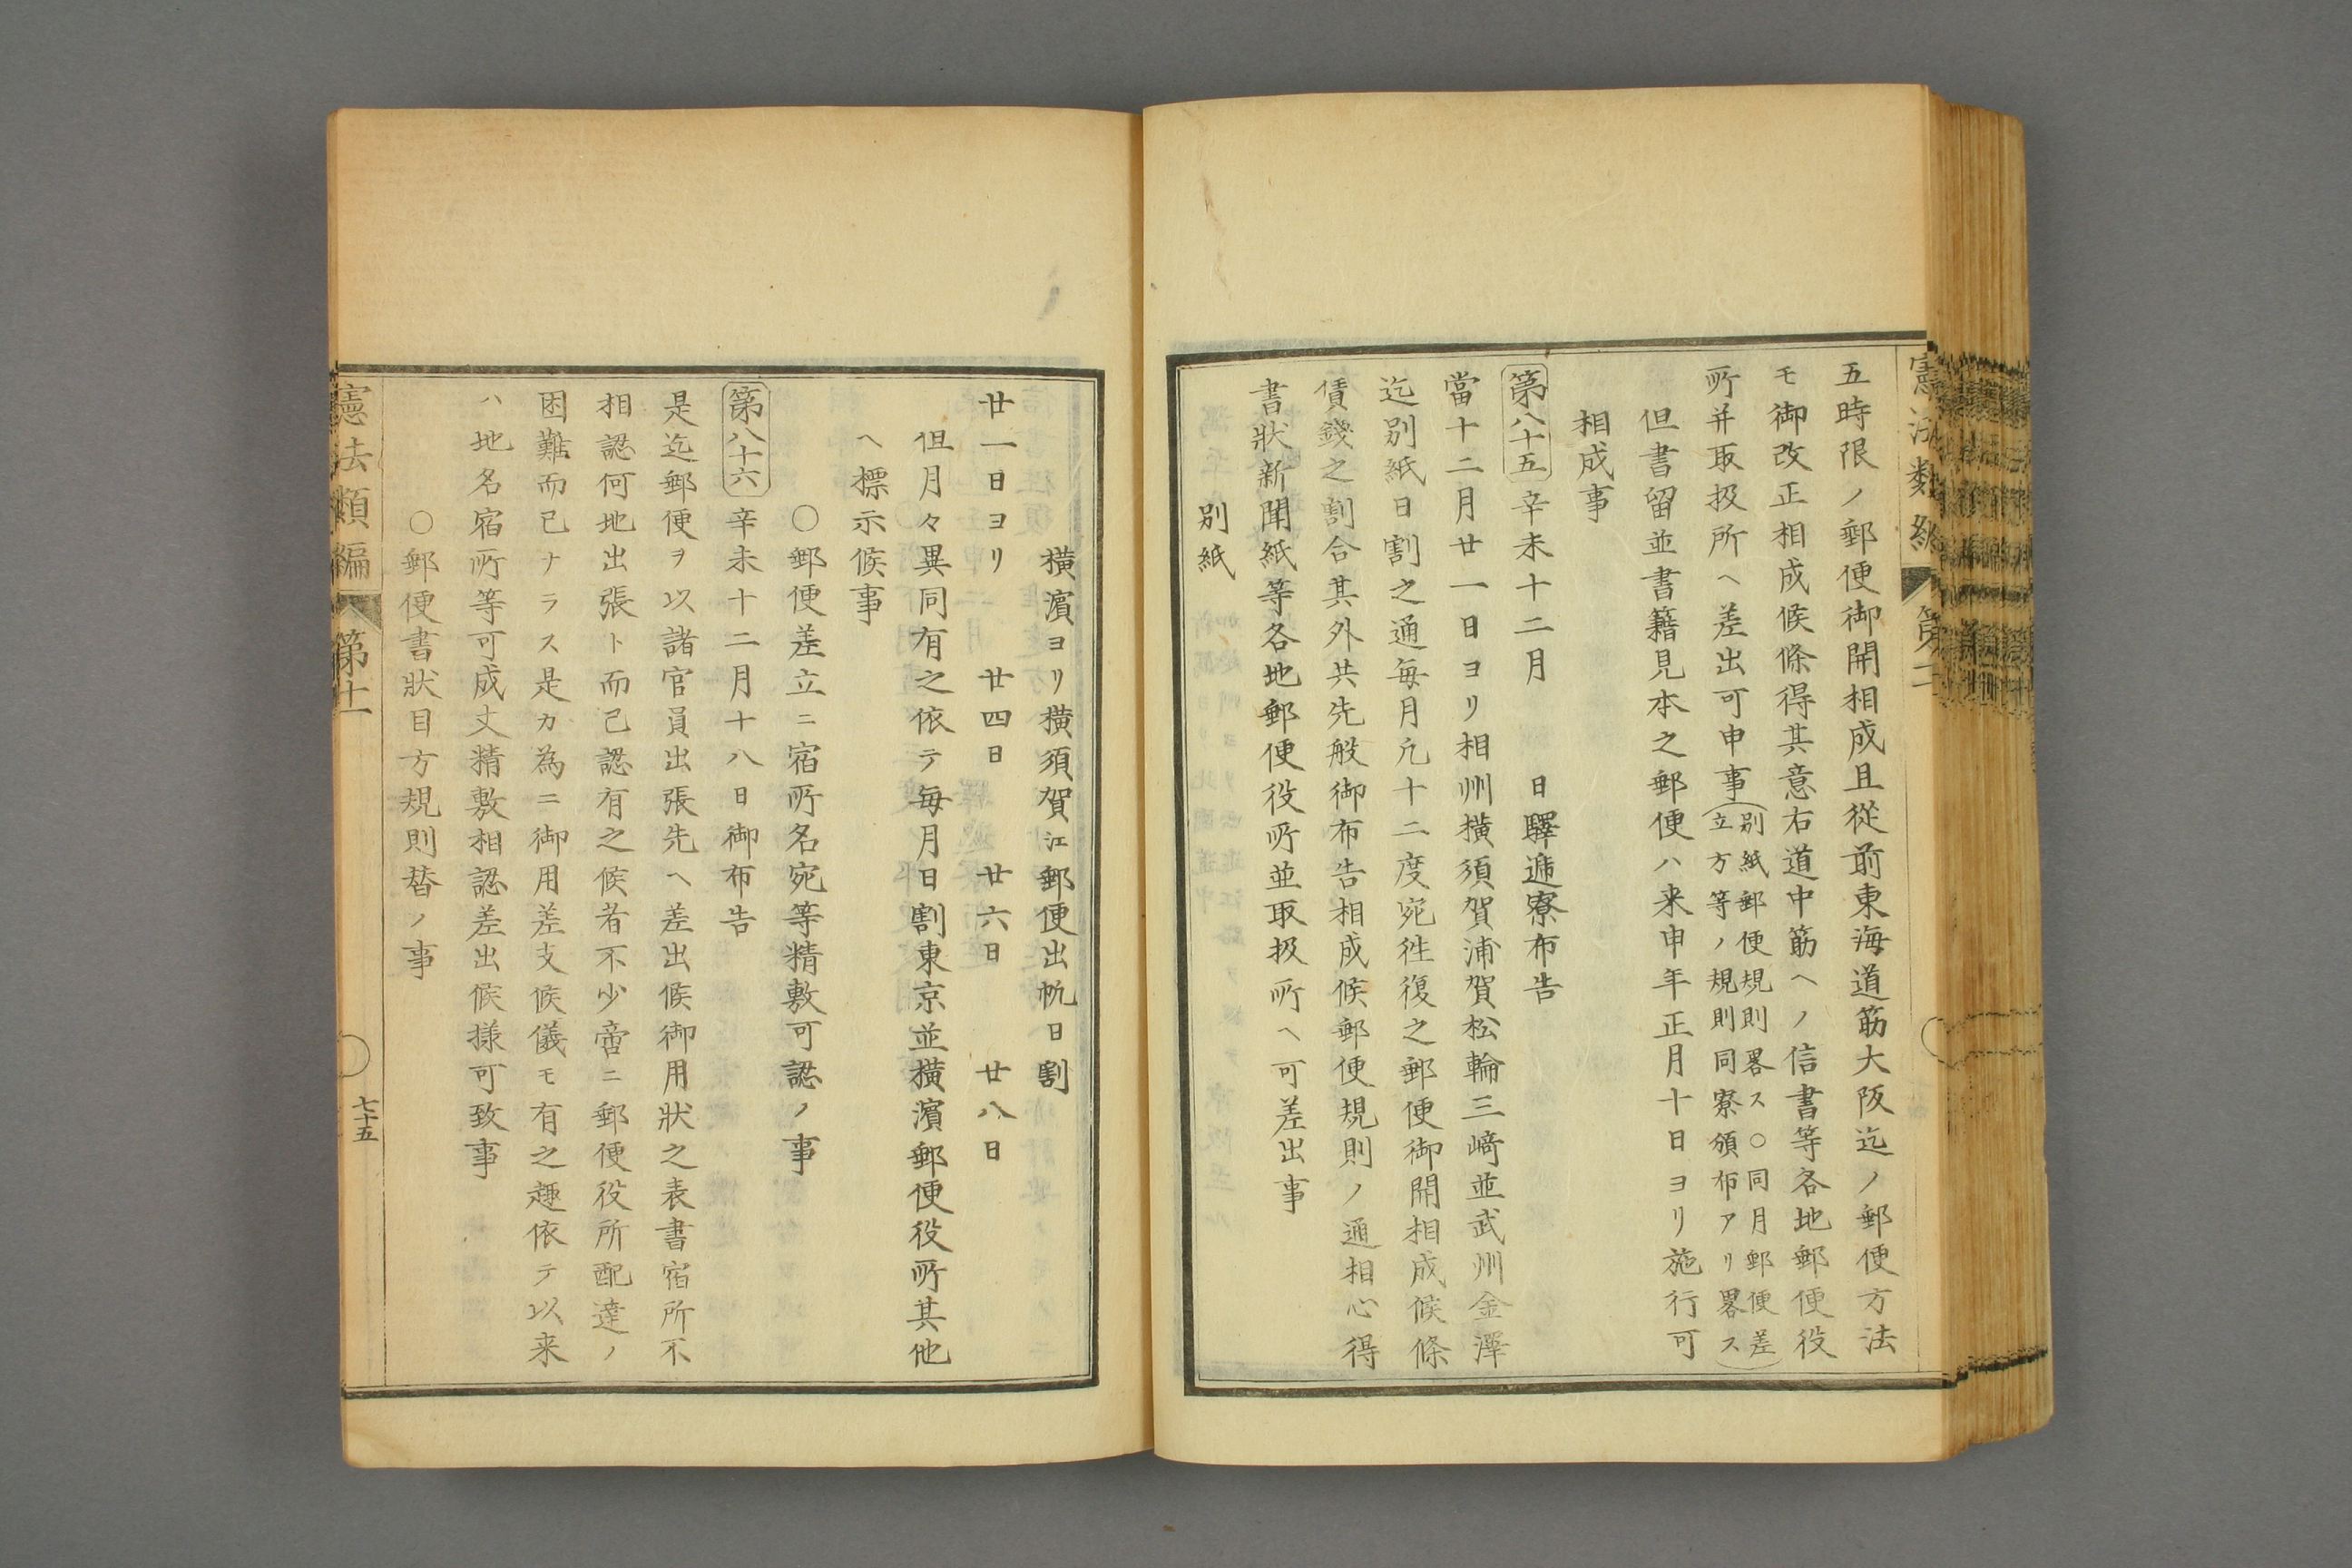 五時限ノ郵便御開相成且從前東海道筋大阪迄ノ郵便方法
モ御改正相成候條得其意右道中筋ヘノ信書等各地郵便役
所并取扱所ヘ差出可申事(別紙郵便規則畧ス○同月郵便差
立方等ノ規則同寮頒布アリ畧ス)
但書留並書籍見本之郵便ハ来申年正月十日ヨリ施行可
相成事
第八十五 辛未十二月 日驛遞寮布告
當十二月廿一日ヨリ相州横須賀浦賀松輪三﨑並武州金澤
迄別紙日割之通毎月凢十二度宛徃復之郵便御開相成候條
賃錢之割合其外共先般御布告相成候郵便規則ノ通相心得
書狀新聞紙等各地郵便役所並取扱所ヘ可差出事
別紙
横濱ヨリ横須賀江郵便出帆日割
廿一日ヨリ 廿四日 廿六日 廿八日
但月々異同有之依テ毎月日割東京並横濱郵便役所其他
ヘ標示候事
○郵便差立ニ宿所名宛等精敷可認ノ事
第八十六 辛未十二月十八日御布告
是迄郵便ヲ以諸官員出張先ヘ差出候御用狀之表書宿所不
相認何地出張ト而己認有之候者不少啻ニ郵便役所配達ノ
困難而已ナラス是カ為ニ御用差支候儀モ有之趣依テ以来
ハ地名宿所等可成丈精敷相認差出候樣可致事
○郵便書狀目方規則替ノ事
憲法類編 第十一
七十五